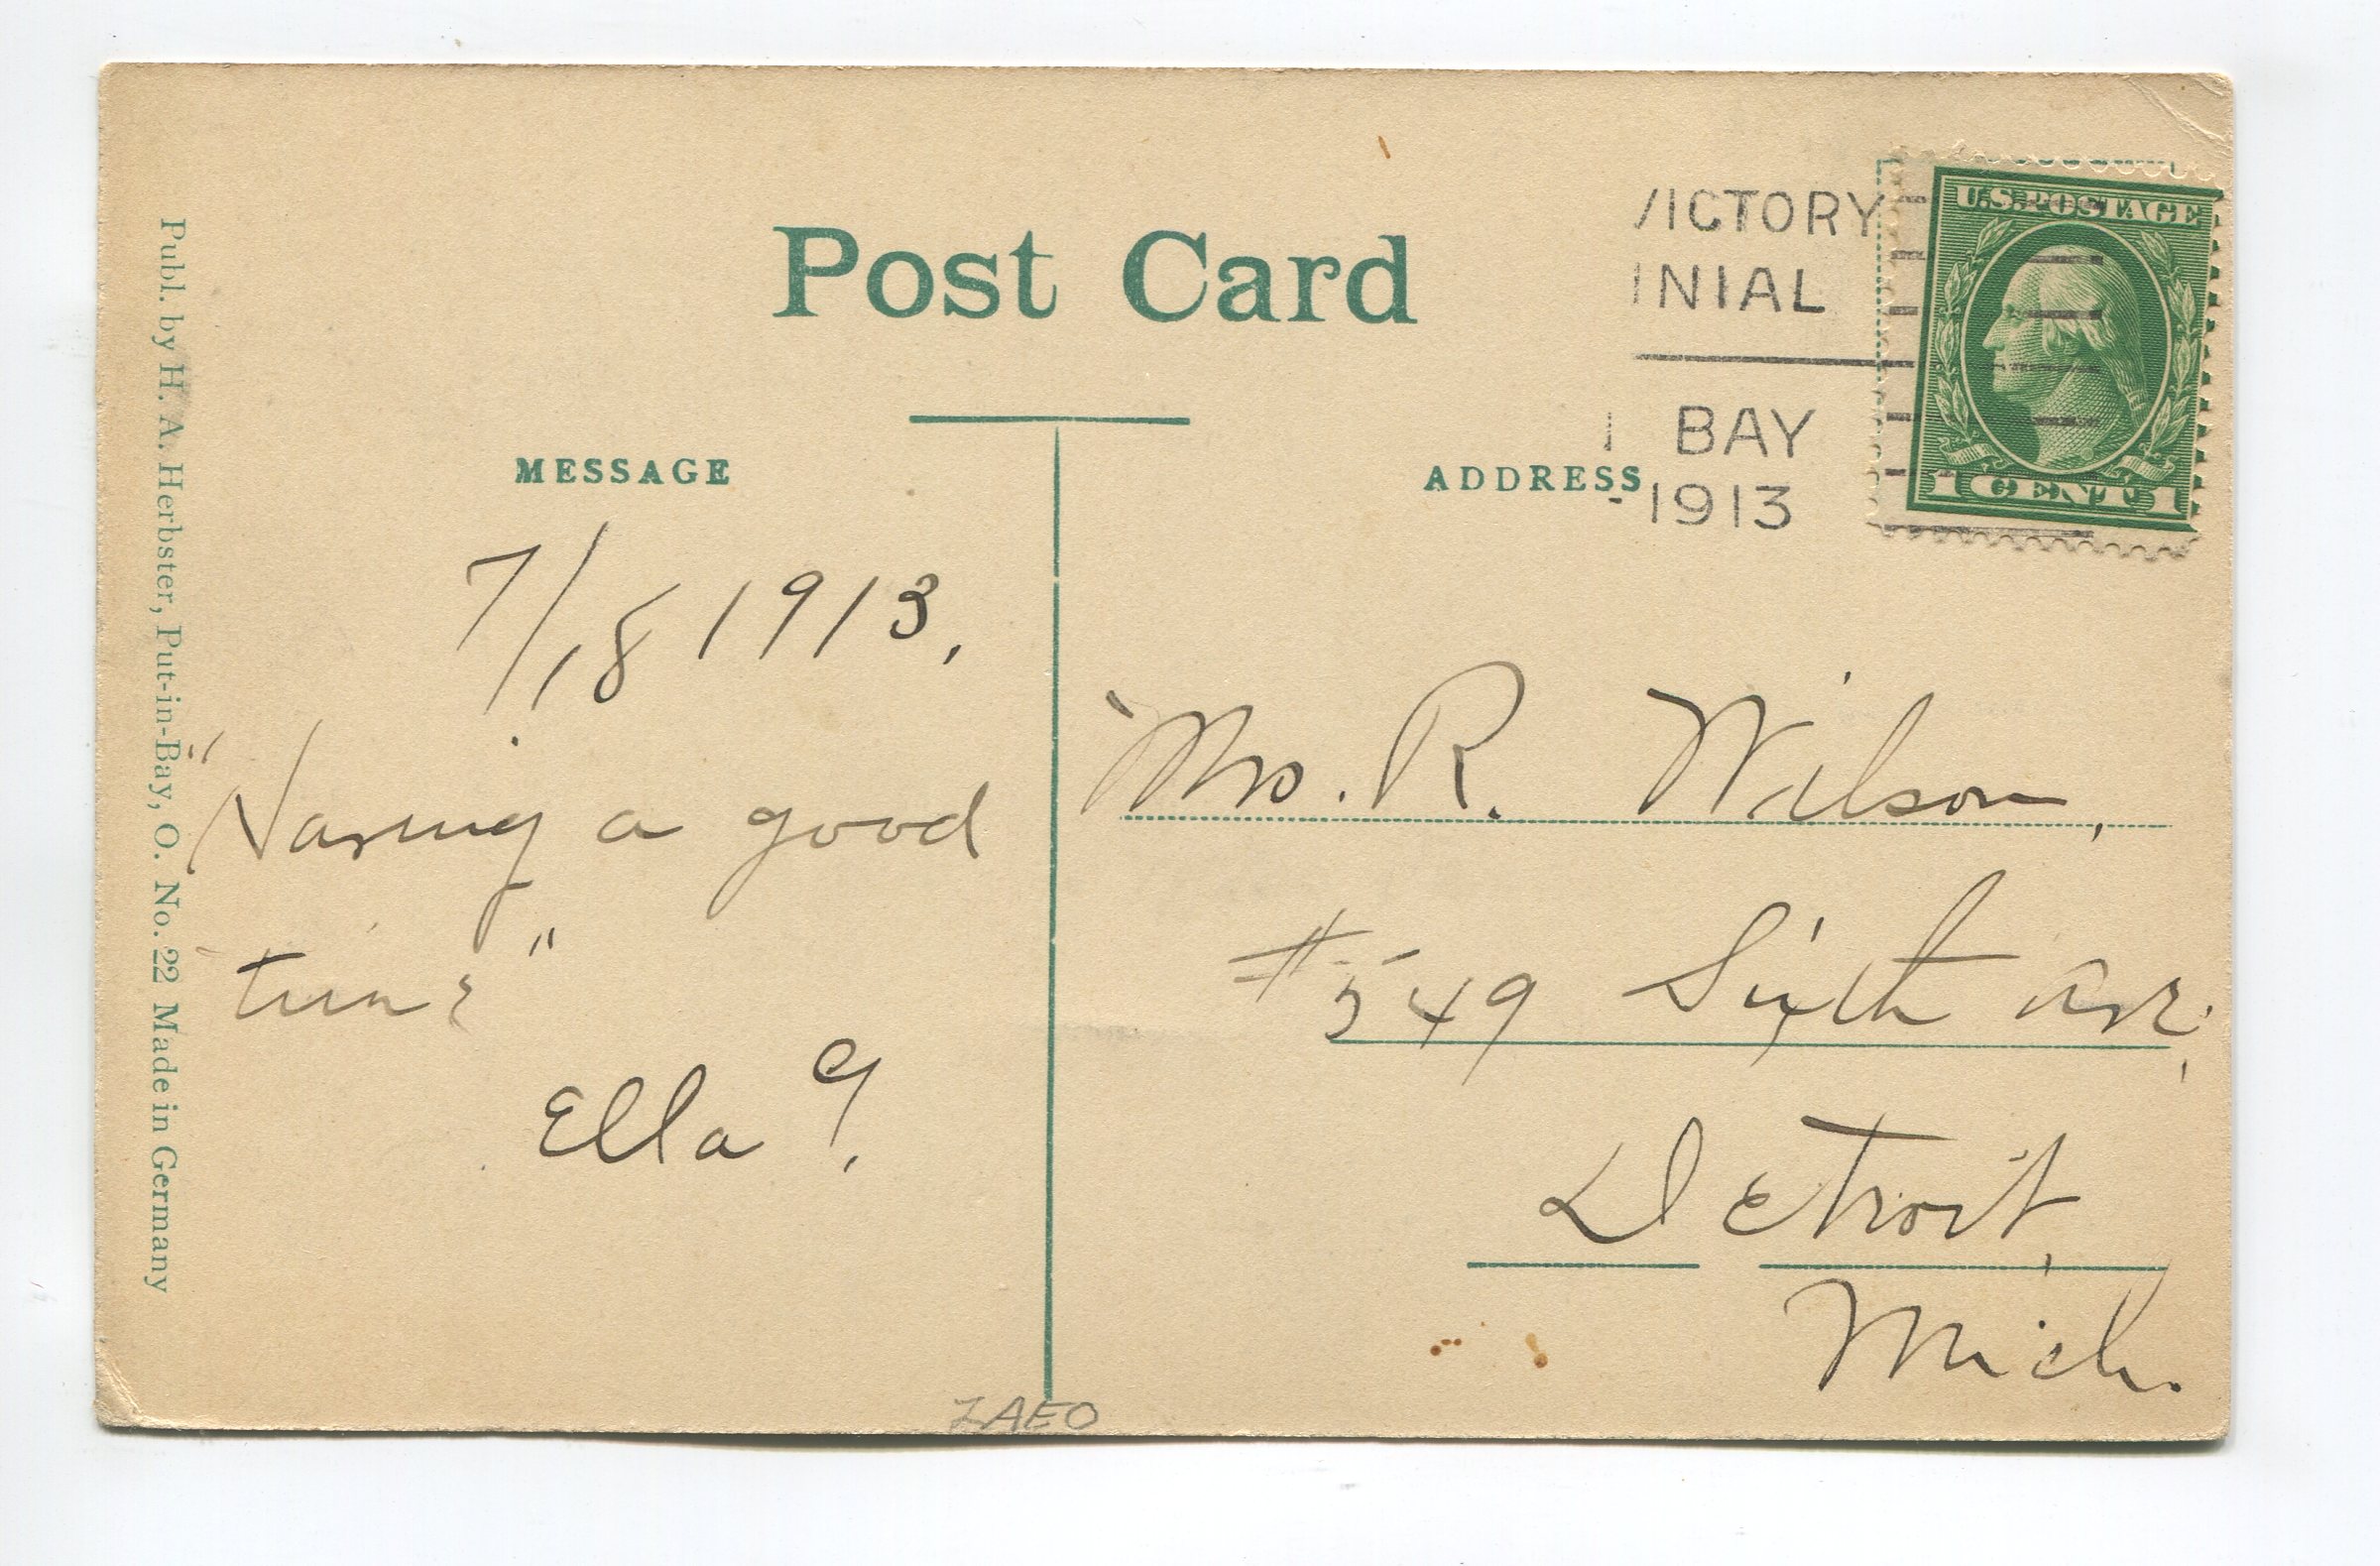 Post Card
VICTORY
NIAL
BAY
-1913
U.S. POSTAGE
1 CENT 1
MESSAGE
ADDRESS
7/18 1913.
"Having a good
time"
Ella G.
Mrs. R. Wilson,
#549 Sixth Ave.,
Detroit,
Mich.
Publ. by H. A. Herbster, Put-in-Bay, O. No. 22 Made in Germany